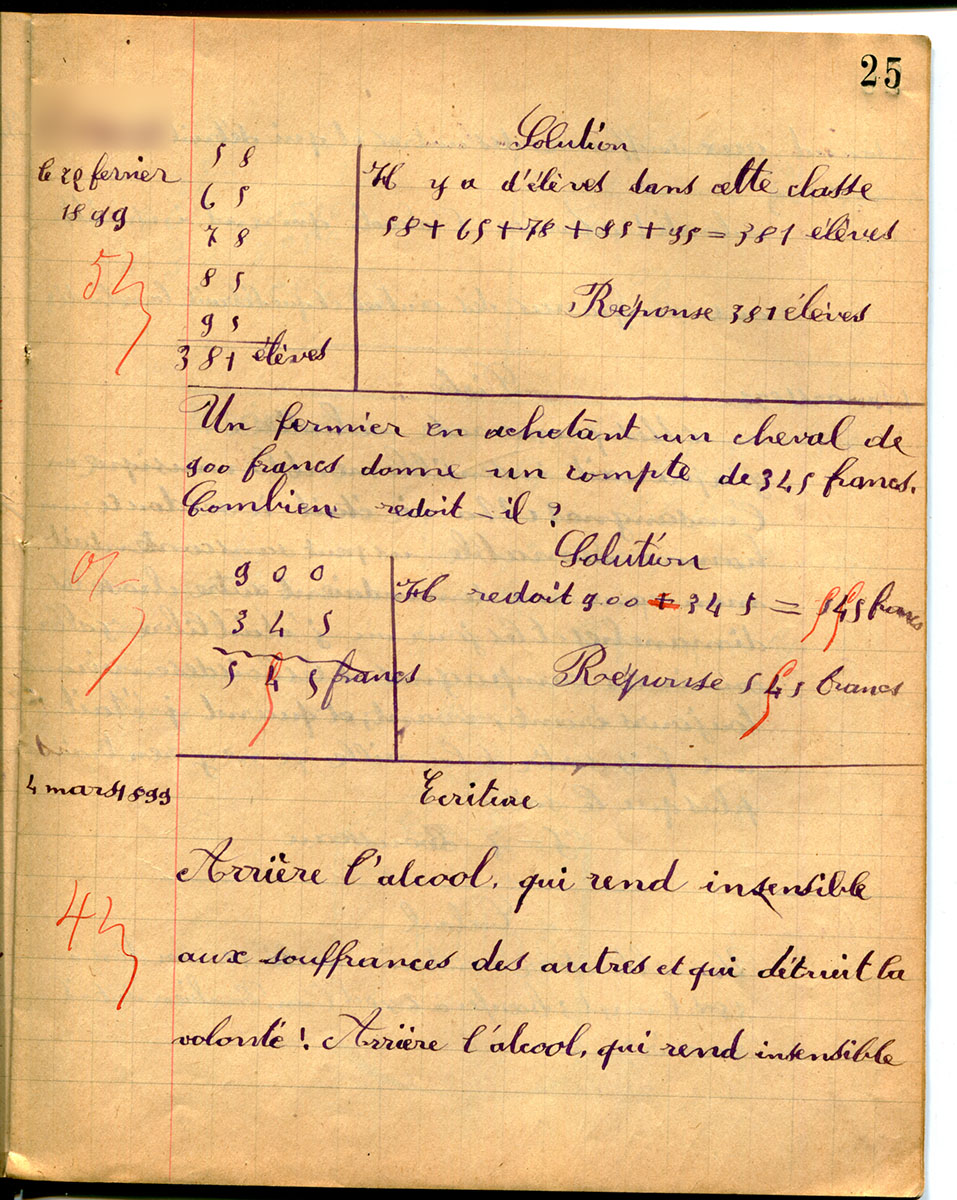 25
Solution
le 28 fevrier
1899
5
58
65
78
85
95
381 élèves
Il y a d'élèves dans cette classe
58+65+78+85+95=381 élèves
Réponse 381 élèves
Un fermier en achetant un cheval de
900 francs donne un compte de 345 francs.
Combien redoit-il ?
Solution
0
900
345
545 francs
Il redoit 900 345 = 545 francs
Réponse 545 francs
4 mars 1899
Ecriture
4
Arrière l'alcool, qui rend insensible
aux souffrances des autres et qui détruit la
volonté ! Arrière l'alcool, qui rend insensible